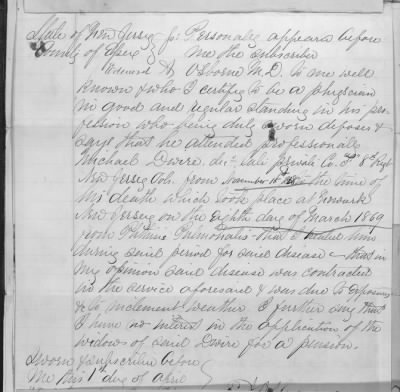 State of New Jersey } ss: Personaly appears before
County of Essex } me the subscriber
Edward A Osborne M.D. to me well
known & who I certify to be a physician
in good and regular standing in his pro-
fession who being duly sworn deposes &
says that he attended professionaly
Michael Dwire, dec. late private Co. 8th Regt
New Jersey Vols. from November 18th the time of
his death which took place at Newark
New Jersey on the Eighth day of March 1869
from Phthisis Pulmonalis that I treated him
during said period for said disease - that in
my opinion said disease was contracted
in the service aforesaid & was due to exposure
& to inclement weather I further say that
I have no interest in the application of the
widow of said Dwire for a pension.
Sworn & subscribed before
me this 1st day of April